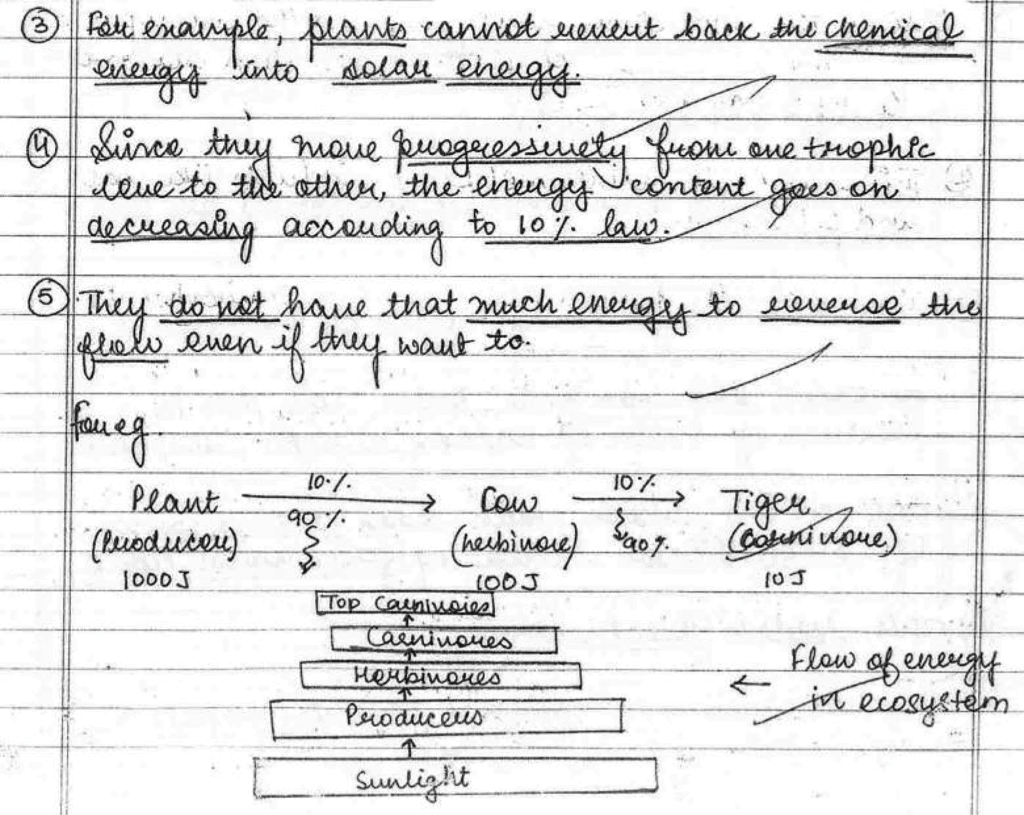 ③ For example, plants cannot revert back the chemical
energy into solar energy.
④ Since they move progressively from one trophic
leve to the other, the energy content goes on
decreasing according to 10% law.
⑤ They do not have that much energy to reverse the
flow even if they want to.
for eg.
10% 10%
Plant Cow Tiger
90%
(Producer) (herbivore) 90% (carnivore)
1000J 100J 10J
Top Carnivores
Carnivores
Herbivores
Producers
Sunlight
Flow of energy
in ecosystem